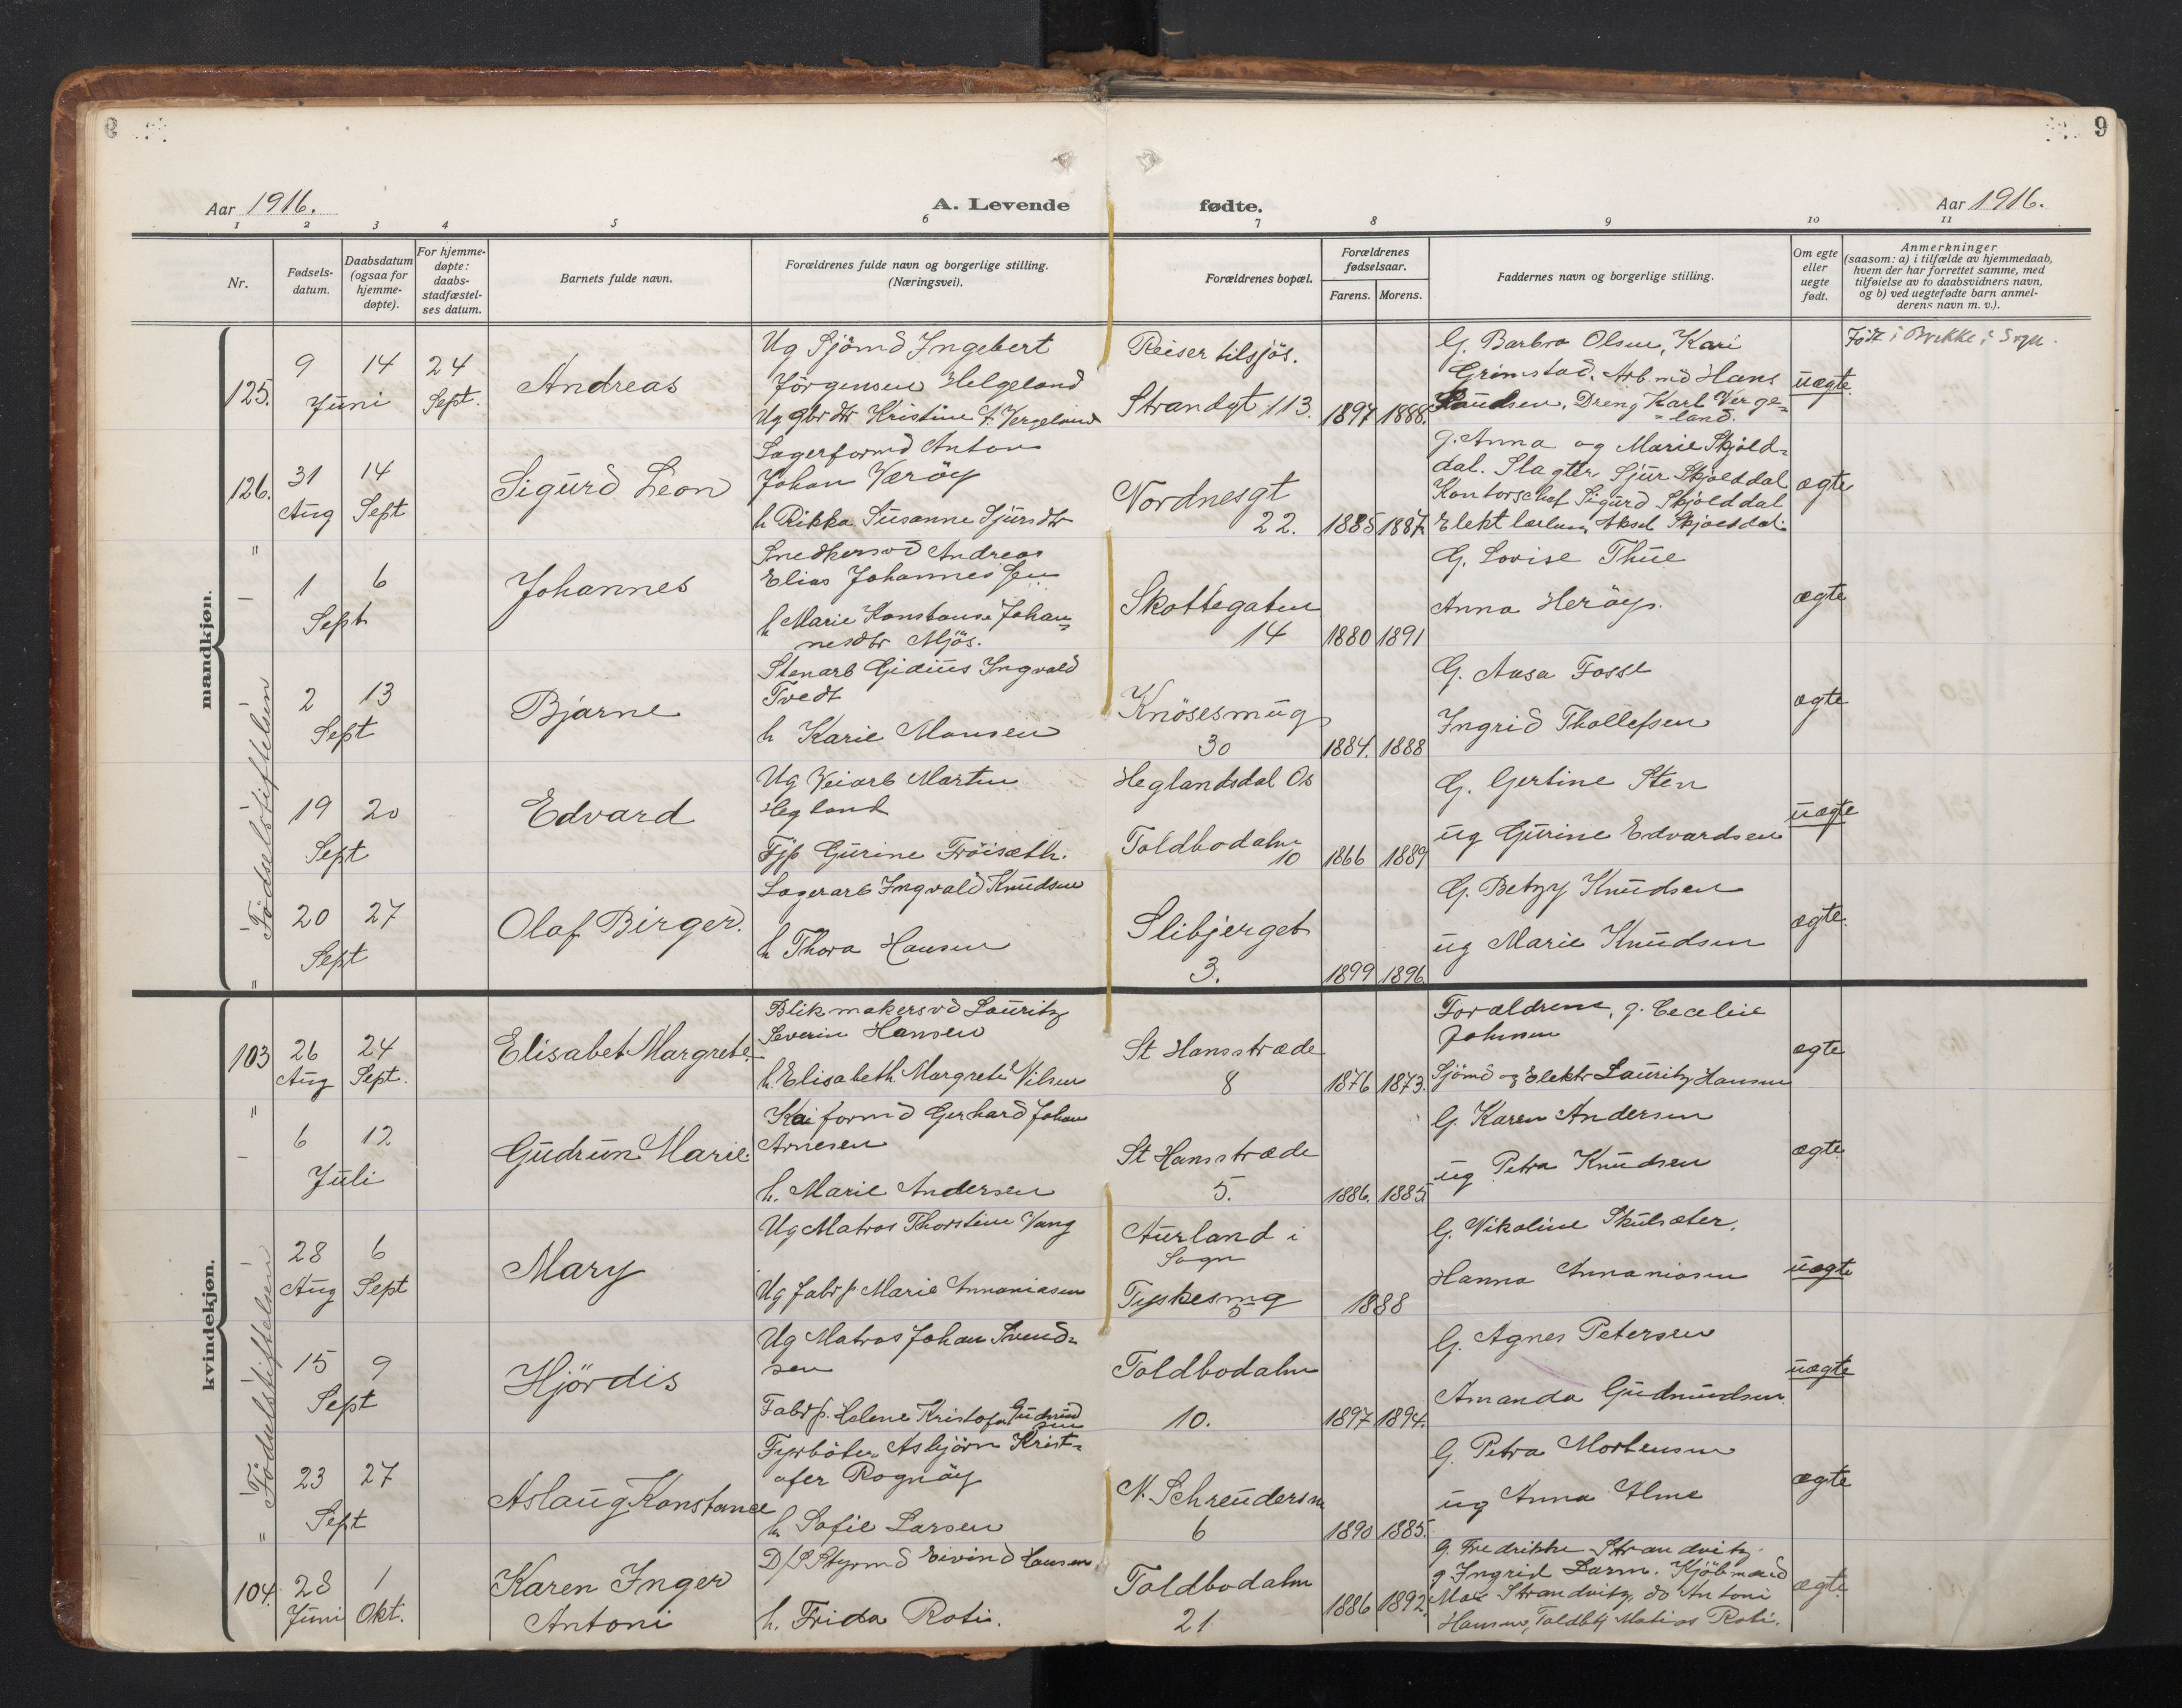 9
Aar 1916.
A. Levende fødte.
Aar 1916.
1 2 3 4 5 6 7 8 9 10 11
Nr.
Fødsels-
datum.
Daabsdatum
(ogsaa for
hjemme-
døpte).
For hjemme-
døpte:
daabs-
stadfæstel-
ses datum.
Barnets fulde navn.
Forældrenes fulde navn og borgerlige stilling.
(Næringsvei).
Forældrenes bopæl.
Forældrenes
fødselsaar.
Farens. Morens.
Faddernes navn og borgerlige stilling.
Om egte
eller
uegte
født.
Anmerkninger
(saasom: a) i tilfælde av hjemmedaab,
hvem der har forrettet samme, med
tilføielse av to daabsvidners navn,
og b) ved uegtefødte barn anmel-
derens navn m. v.).
mandkjøn.
125. 9 Juni 14 24 Sept.
Andreas
Ug Sjömd Ingebert
Jörgensen Helgeland
Ug gbrdtr Kristine Vergeland
Reiser tilsjös.
Strandgt 113. 1897 1888.
G. Barbra Olsen, Kari
Grimstad, Arb.md Hans
Knudsen, Dreng Karl Verge=
=land.
uægte.
Født i Brekke i Sogn.
126. 31 Aug 14 Sept
Sigurd Leon
Lagerformd Anton
Johan Værøy
h Rikka Susanne Sjursdtr
Nordnesgt
22. 1885 1887
G. Anna og Marie Skjold=
dal. Slagter Sjur Skjolddal
Kontorschef Sigurd Skjolddal
Aksel Skjolddal
ægte
" 1 6 Sept
Johannes
Snedkersvd Andreas
Elias Johannessen
h Marie Konstanse Johan=
nesdtr Mjös.
Skottegaten
14 1880 1891
G. Lovise Thue
Anna Heröy.
ægte
Fødselsstiftelsen
2 13 Sept
Bjarne
Stenarb Gidius Ingvald
Tvedt
h Karie Monsen
Knösesmug
30 1884. 1888
G. Aasa Fosse
Ingrid Thollefsen
ægte
19 20 Sept
Edvard
Ug Veiarb Martin
Hegland
Tjp Gurine Fröisæth.
Heglandsdal Os
Toldbodalm
10 1866 1889
G. Gertine Sten
ug Gurine Edvardsen
uægte
" 20 27 Sept
Olaf Birger.
Lagerarb Ingvald Knudsen
h Thora Hansen
Slibjerget
3. 1899 1896.
G. Betzy Knudsen
ug Marie Knudsen
ægte.
kvindekjøn.
103 26 Aug 24 Sept.
Elisabet Margrete
Blikmakersvd Lauritz
Severin Hansen
h. Elisabeth Margrete Nilsen
St Hansstræde
8 1876 1873.
Forældrene, g. Cecelie
Johnsen
Sjömd og Elektr Lauritz Hansen
ægte
" 6 12 Juli
Gudrun Marie.
Kaiformd Gerhard Johan
Arnesen
h. Marie Andersen
St Hansstræde
5. 1886. 1885
G. Karen Andersen
ug Petra Knudsen
ægte
Fødselsstiftelsen
28 Aug 6 Sept
Mary
Ug Matros Thorstein Vang
Ug fabrp Marie Annaniasen
Aurland i
Sogn
Tyskesmg
5 1888
G. Nikoline Skulsæter.
Hanna Annaniasen
uægte
15 9 Sept
Hjördis
Ug Matros Johan Svend=
sen
Fabrp. Helene Kristofa Gudmund
sen
Toldbodalm
10. 1897 1894.
G. Agnes Petersen
Amanda Gudmundsen
uægte
" 23 27 Sept
Aslaug Konstance
Fyrböter Asbjörn Krist=
ofer Rognöy
h. Sofie Larsen
N. Schreudersm
6 1890 1885.
G. Petra Mortensen
ug Anna Alme
ægte
104. 28 Juni 1 Okt.
Karen Inger
Antoni
D/S Styrmd Eivind Hansen
h. Frida Roti.
Toldbodalm
21 1886 1892.
g. Fredrikke Strandvitz
g Ingrid Kjöbmand
Max Strandvitz, do Antoni
Hansen, Toldbtj Matias Roti.
ægte.